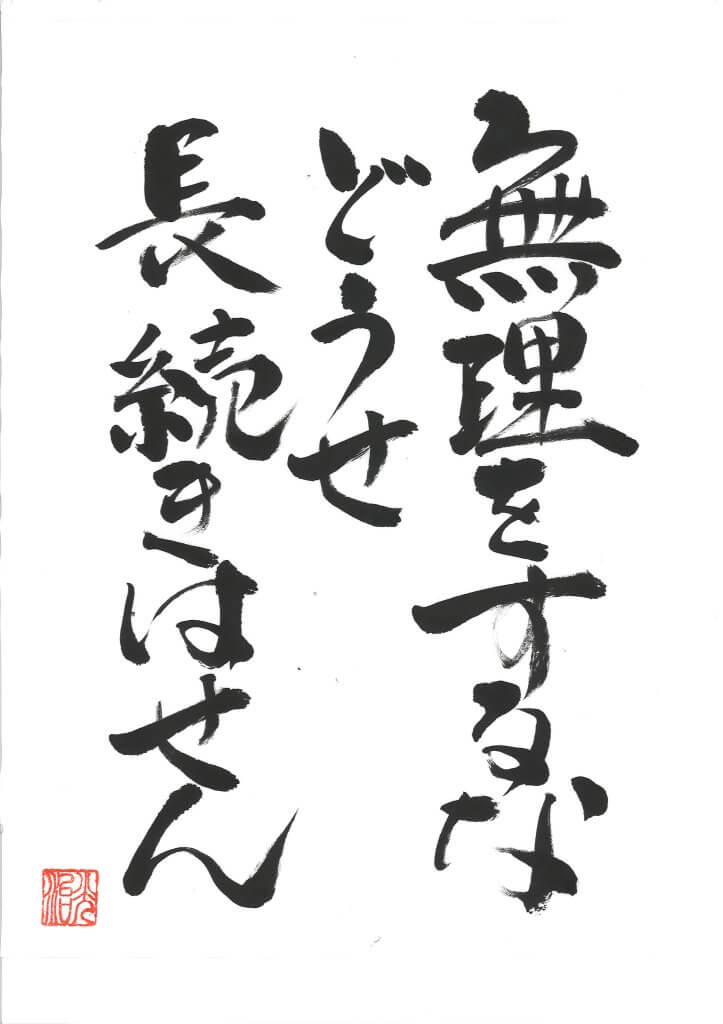 無理をするな
どうせ
長続きはせん